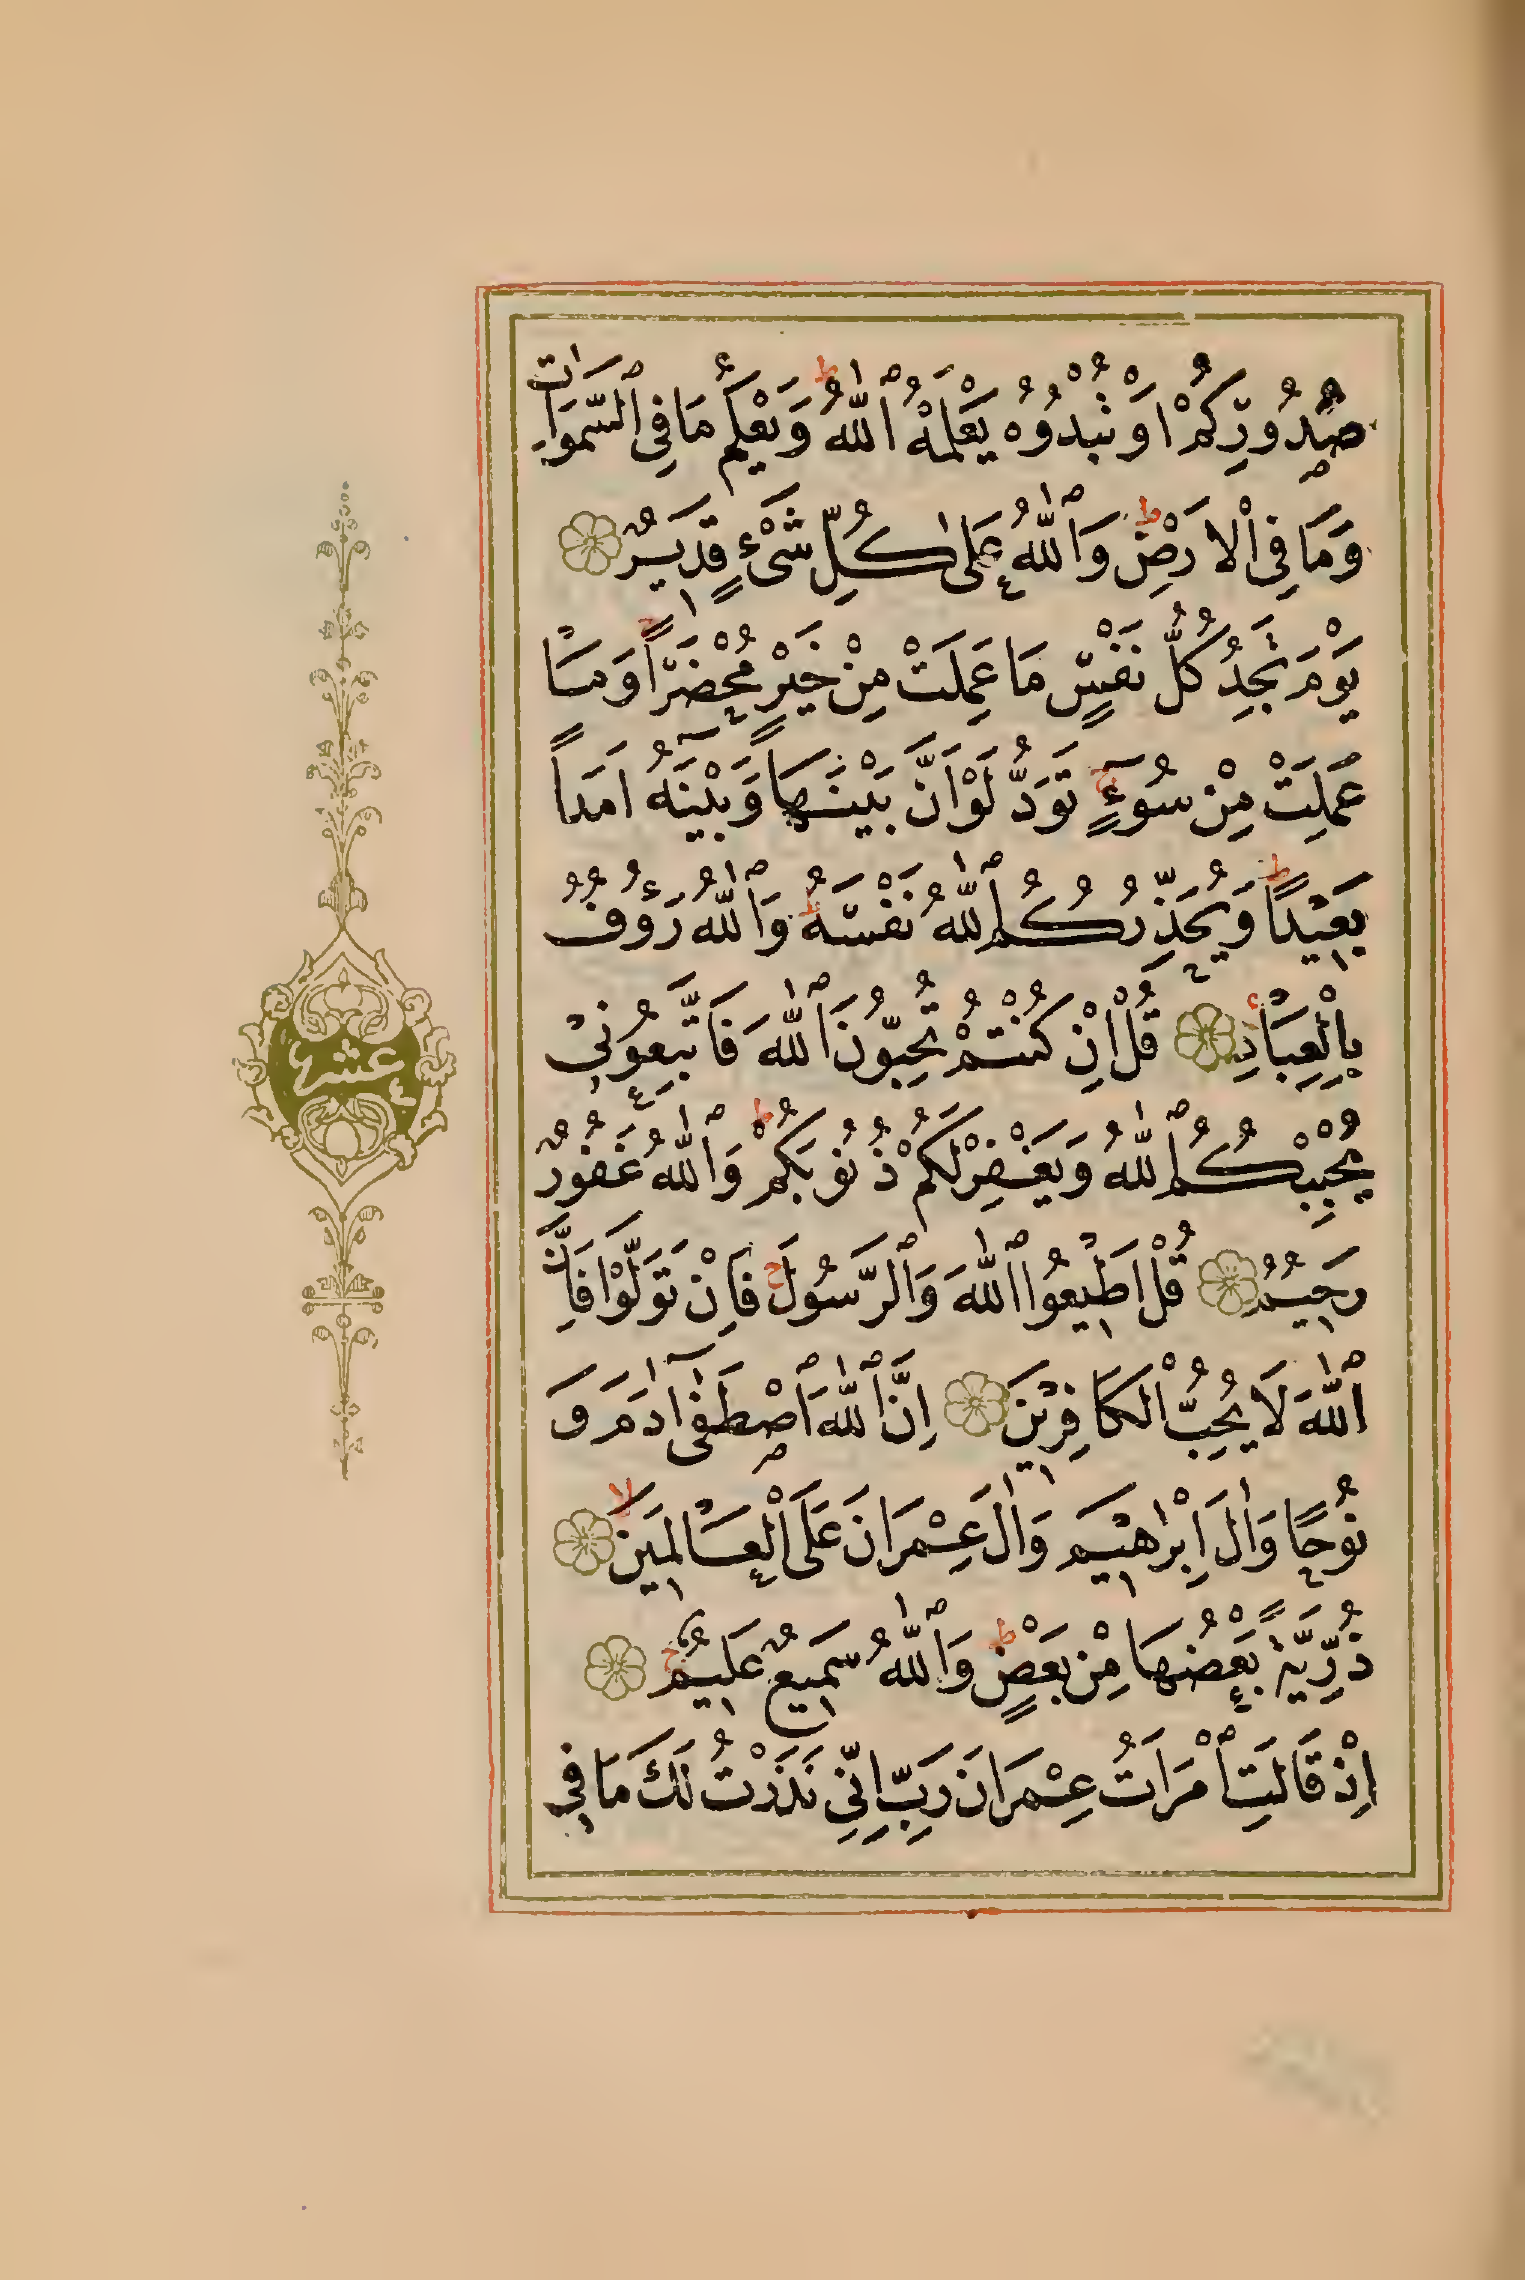 صُدُورِكُمْ اَوْ تُبْدُوهُ يَعْلَمْهُ ٱللّٰهُ ط وَيَعْلَمُ مَا فِى ٱلسَّمٰوَاتِ
وَمَا فِى ٱلْاَرْضِ ط وَٱللّٰهُ عَلٰى كُلِّ شَىْءٍ قَدِيرٌ
يَوْمَ تَجِدُ كُلُّ نَفْسٍ مَا عَمِلَتْ مِنْ خَيْرٍ مُحْضَرًا ج وَمَا
عَمِلَتْ مِنْ سُوٓءٍ ج تَوَدُّ لَوْ اَنَّ بَيْنَهَا وَبَيْنَهُٓ اَمَدًا
بَعِيدًا ط وَيُحَذِّرُكُمُ ٱللّٰهُ نَفْسَهُ ط وَٱللّٰهُ رَؤُفٌ
بِٱلْعِبَادِ قُلْ اِنْ كُنْتُمْ تُحِبُّونَ ٱللّٰهَ فَاتَّبِعُونِى
يُحْبِبْكُمُ ٱللّٰهُ وَيَغْفِرْ لَكُمْ ذُنُوبَكُمْ ط وَٱللّٰهُ غَفُورٌ
رَحِيمٌ قُلْ اَطِيعُوا ٱللّٰهَ وَٱلرَّسُولَ ج فَاِنْ تَوَلَّوْا فَاِنَّ
ٱللّٰهَ لَا يُحِبُّ ٱلْكَافِرِينَ اِنَّ ٱللّٰهَ ٱصْطَفٰٓى اٰدَمَ وَ
نُوحًا وَاٰلَ اِبْرٰهِيمَ وَاٰلَ عِمْرَانَ عَلَى ٱلْعَالَمِينَ لا
ذُرِّيَّةً بَعْضُهَا مِنْ بَعْضٍ ط وَٱللّٰهُ سَمِيعٌ عَلِيمٌ ج
اِذْ قَالَتِ ٱمْرَاَتُ عِمْرَانَ رَبِّ اِنِّى نَذَرْتُ لَكَ مَا فِى
عشر